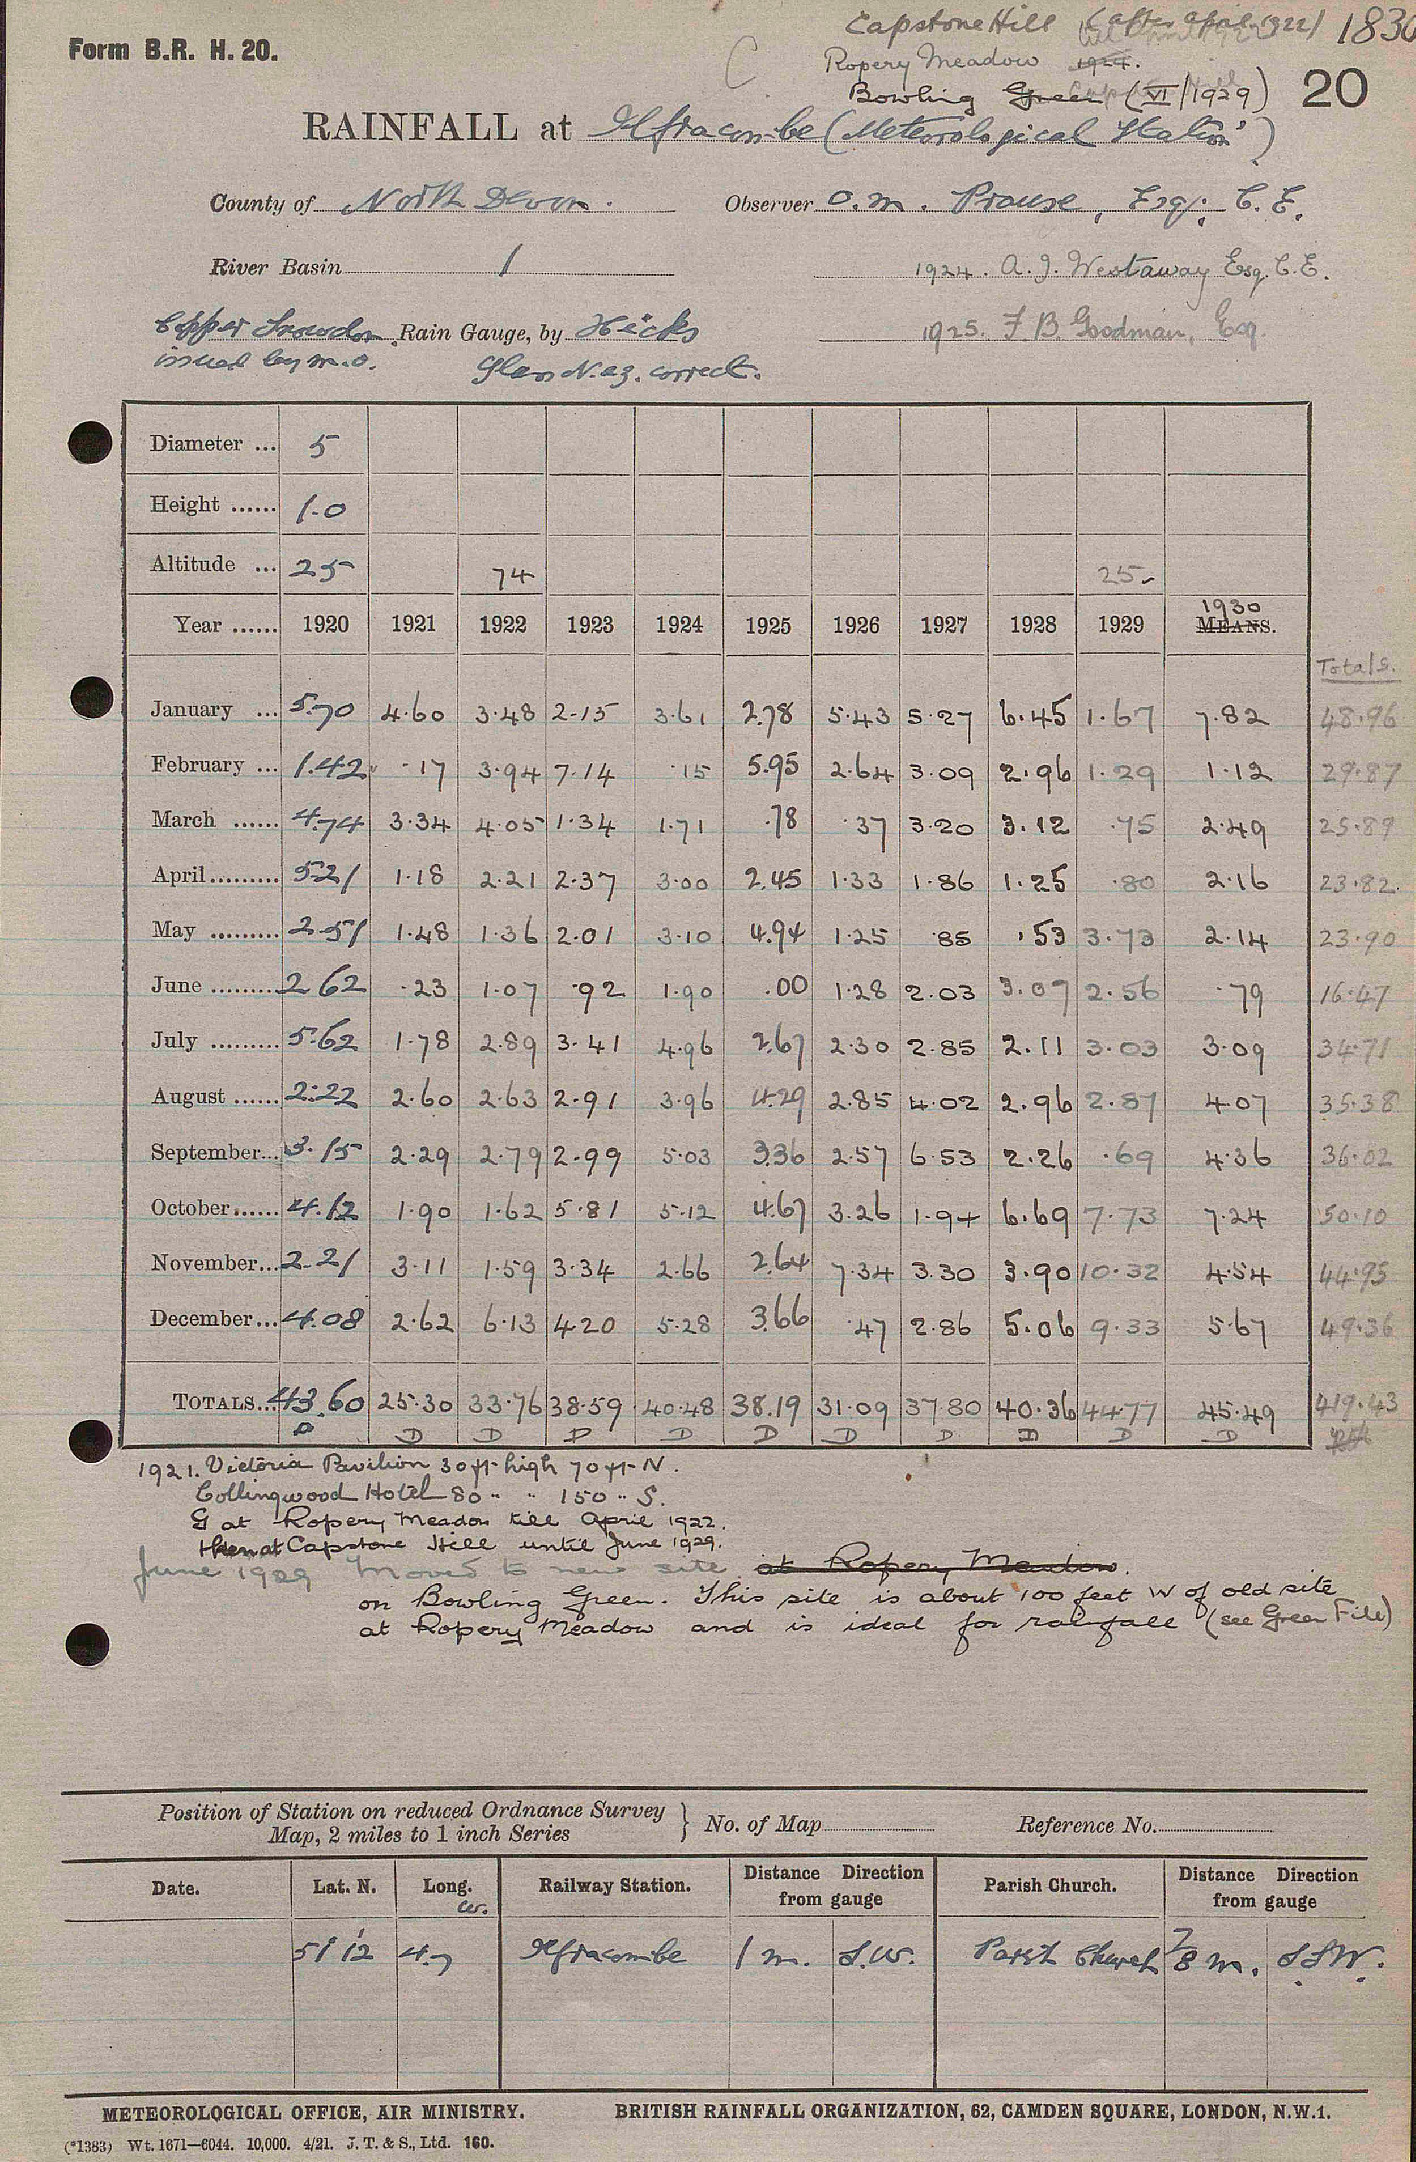 Form B.R. H. 20.
Capstone Hill (after April 1922) 1830
Ropery Meadow 1924.
Bowling Green (VI/1929) 20
RAINFALL at Ilfracombe (Meteorological Station)
County of North Devon. Observer O. M. Prouse, Esq; C.E.
River Basin 1 1924. A. J. Westaway Esq. C.E.
Copper Snowdon Rain Gauge, by Hicks 1925. F B. Goodman, Esq.
issued by M.O. Glass N.az. correct.
Diameter ... 5
Height ...... 1.0
Altitude ... 25 74 25
Year ...... 1920 1921 1922 1923 1924 1925 1926 1927 1928 1929 1930 MEANS.
Totals.
January ... 5.70 4.60 3.48 2.15 3.61 2.78 5.43 5.27 6.45 1.67 7.82 48.96
February ... 1.42 .17 3.94 7.14 .15 5.95 2.64 3.09 2.96 1.29 1.12 29.87
March ...... 4.74 3.34 4.05 1.34 1.71 .78 .37 3.20 3.12 .75 2.49 25.89
April ......... 5.21 1.18 2.21 2.37 3.00 2.45 1.33 1.86 1.25 .80 2.16 23.82
May ......... 2.51 1.48 1.36 2.01 3.10 4.94 1.25 .85 .53 3.73 2.14 23.90
June ......... 2.62 .23 1.07 .92 1.90 .00 1.28 2.03 3.07 2.56 .79 16.47
July ......... 5.62 1.78 2.89 3.41 4.96 2.67 2.30 2.85 2.11 3.03 3.09 34.71
August ...... 2.22 2.60 2.63 2.91 3.96 4.29 2.85 4.02 2.96 2.87 4.07 35.38
September... 3.15 2.29 2.79 2.99 5.03 3.36 2.57 6.53 2.26 .69 4.36 36.02
October ...... 4.12 1.90 1.62 5.81 5.12 4.67 3.26 1.94 6.69 7.73 7.24 50.10
November... 2.21 3.11 1.59 3.34 2.66 2.64 7.34 3.30 3.90 10.32 4.54 44.95
December... 4.08 2.62 6.13 4.20 5.28 3.66 .47 2.86 5.06 9.33 5.67 49.36
TOTALS... 43.60 25.30 33.76 38.59 40.48 38.19 31.09 37.80 40.36 44.77 45.49 419.43
D D D D D D D D D D D
1921. Victoria Pavilion 30 ft high 70 ft N.
Collingwood Hotel 80 " " 150 " S.
G at Ropery Meadow till April 1922.
then at Capstone Hill until June 1929.
June 1929 Moved to new site at Ropery Meadow.
on Bowling Green. This site is about 100 feet W of old site
at Ropery Meadow and is ideal for rainfall (see Green File)
Position of Station on reduced Ordnance Survey Map, 2 miles to 1 inch Series } No. of Map Reference No.
Date. Lat. N. Long. W. Railway Station. Distance Direction from gauge Parish Church. Distance Direction from gauge
51°12' 4.7 Ilfracombe 1 m. S.W. Parish Church 7/8 m. S.S.W.
METEOROLOGICAL OFFICE, AIR MINISTRY. BRITISH RAINFALL ORGANIZATION, 62, CAMDEN SQUARE, LONDON, N.W.1.
(*1383) Wt. 1671—6044. 10,000. 4/21. J. T. & S., Ltd. 160.